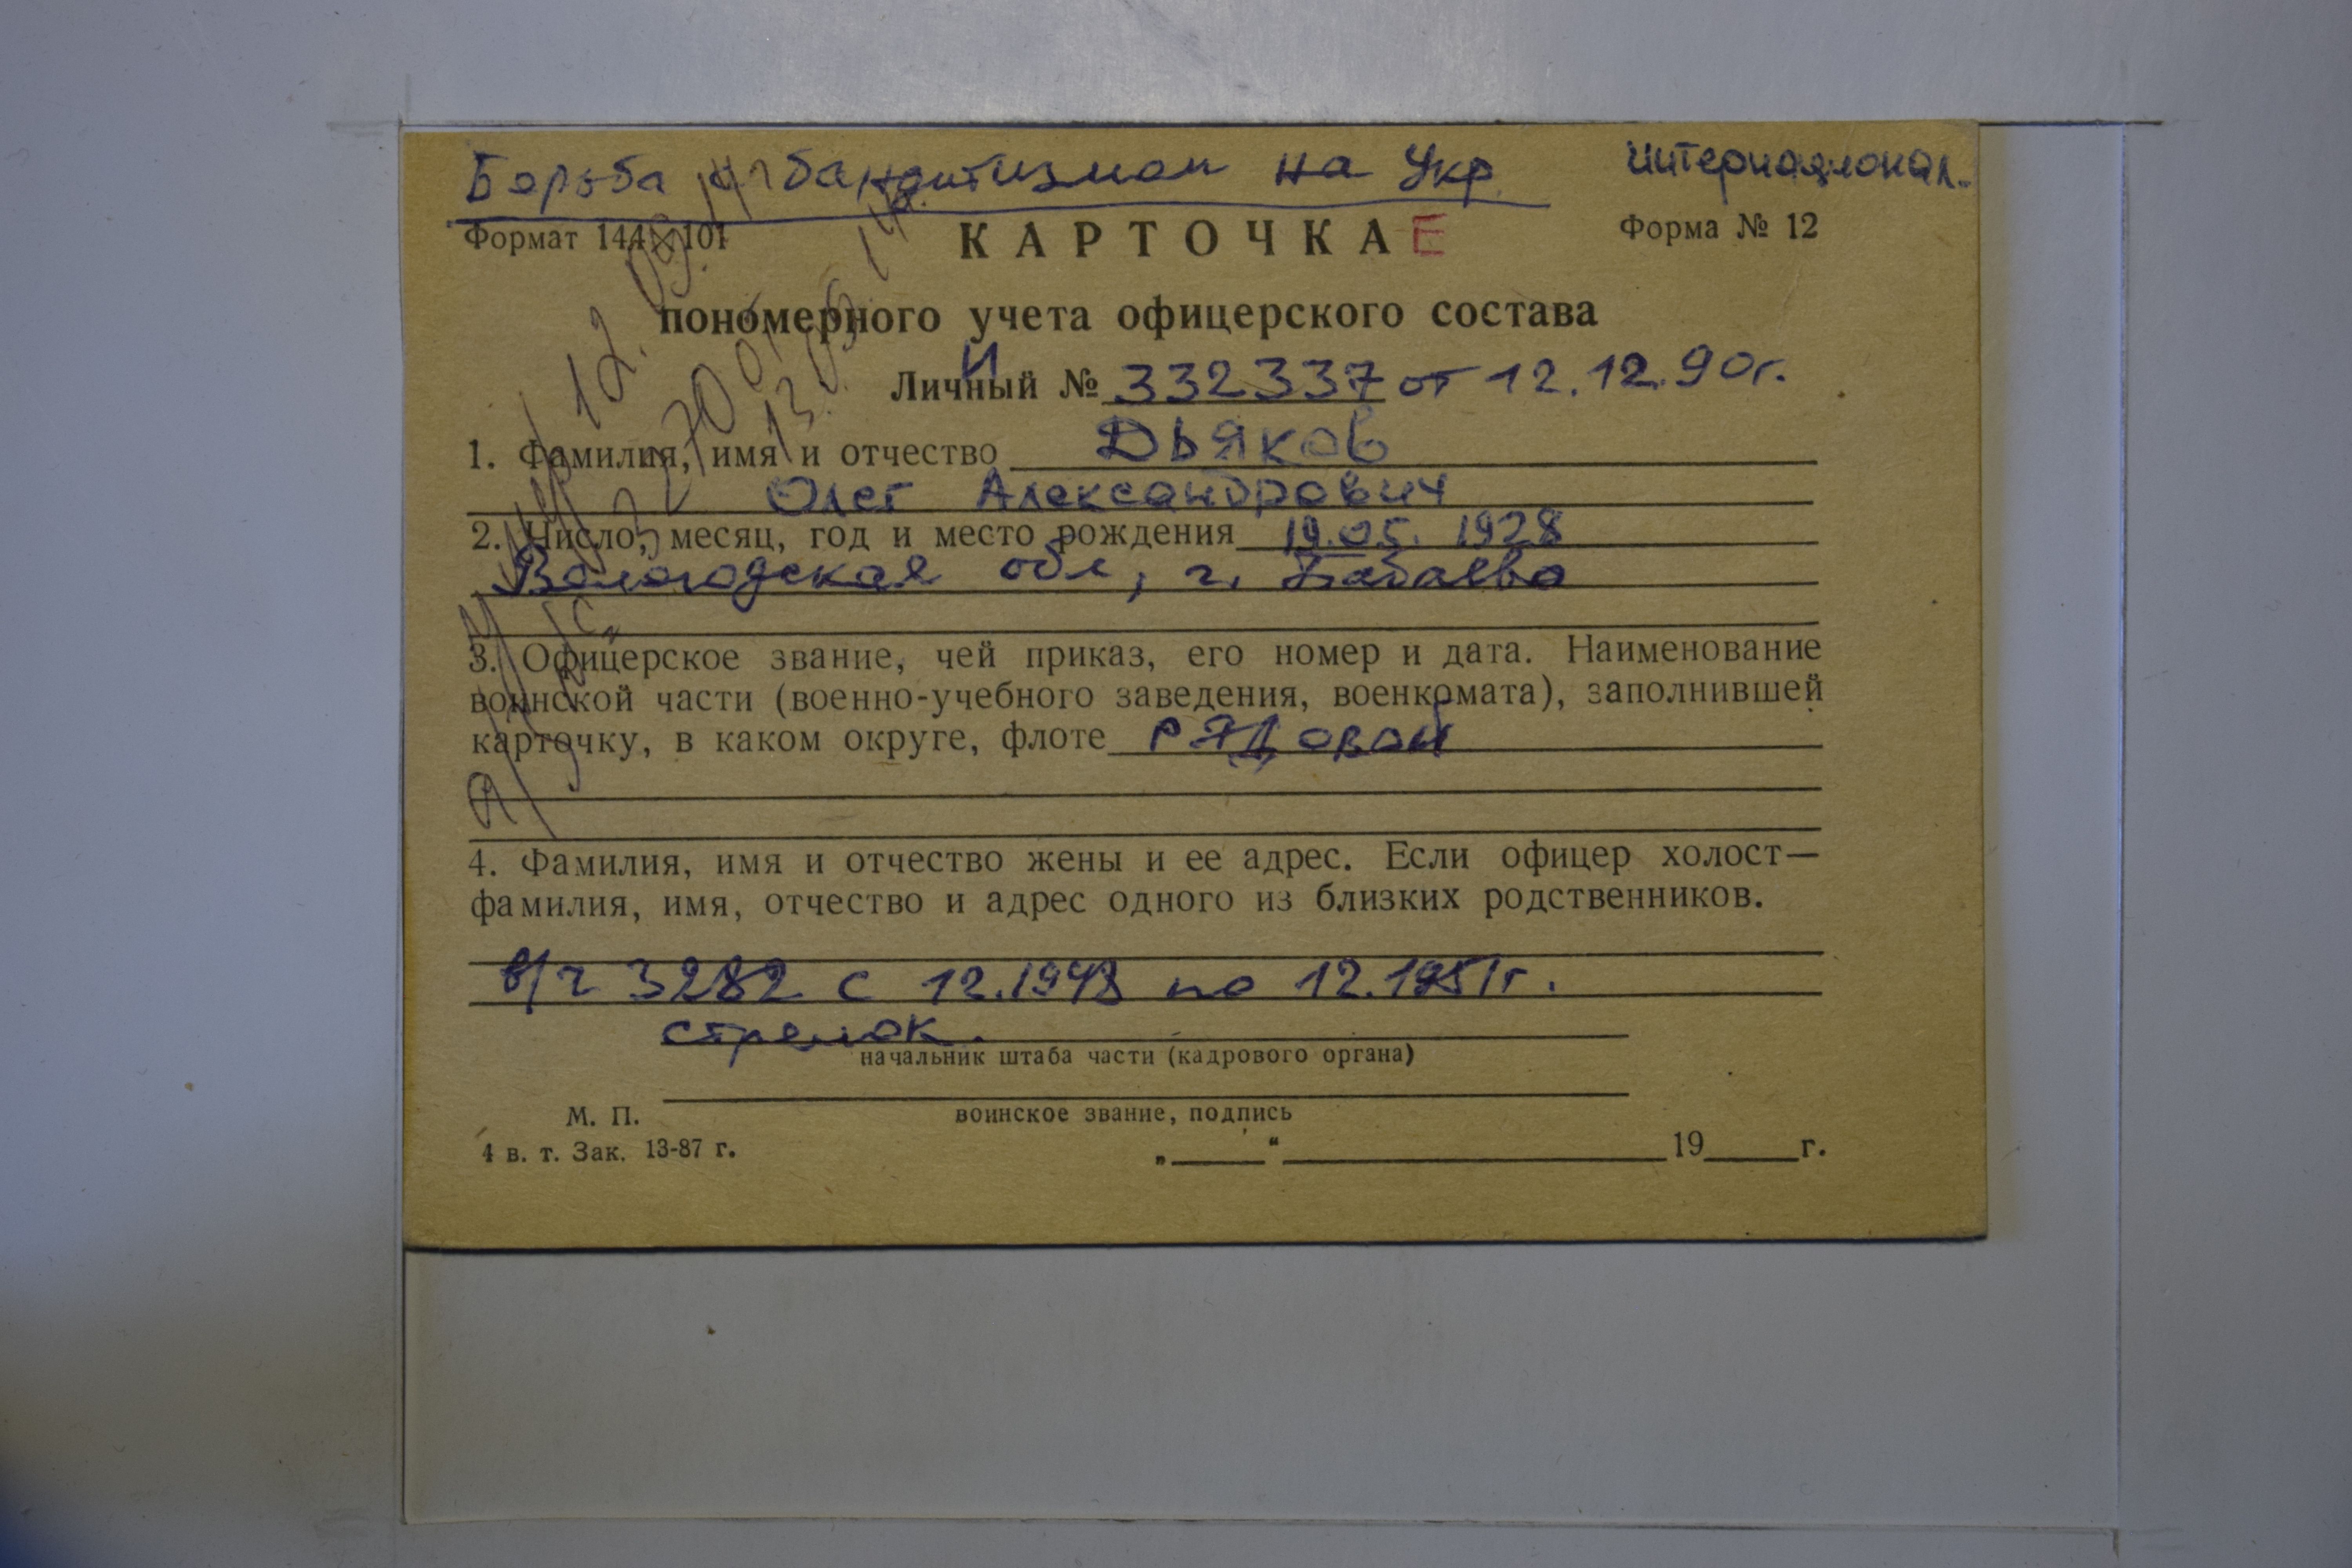 Борьба с бандитизмом на Укр.
Интернационал.
Формат 144×101
КАРТОЧКА Е
Форма № 12
пономерного учета офицерского состава
И
Личный № 332337 от 12.12.90г.
1. Фамилия, имя и отчество Дьяков
Олег Александрович
2. Число, месяц, год и место рождения 19.05.1928
Вологодская обл, г. Бабаево
3. Офицерское звание, чей приказ, его номер и дата. Наименование
воинской части (военно-учебного заведения, военкомата), заполнившей
карточку, в каком округе, флоте рядовой
4. Фамилия, имя и отчество жены и ее адрес. Если офицер холост—
фамилия, имя, отчество и адрес одного из близких родственников.
в/ч 3282 с 12.1948 по 12.1951г.
стрелок.
начальник штаба части (кадрового органа)
воинское звание, подпись
М. П.
4 в. т. Зак. 13-87 г.
„ “ 19 г.